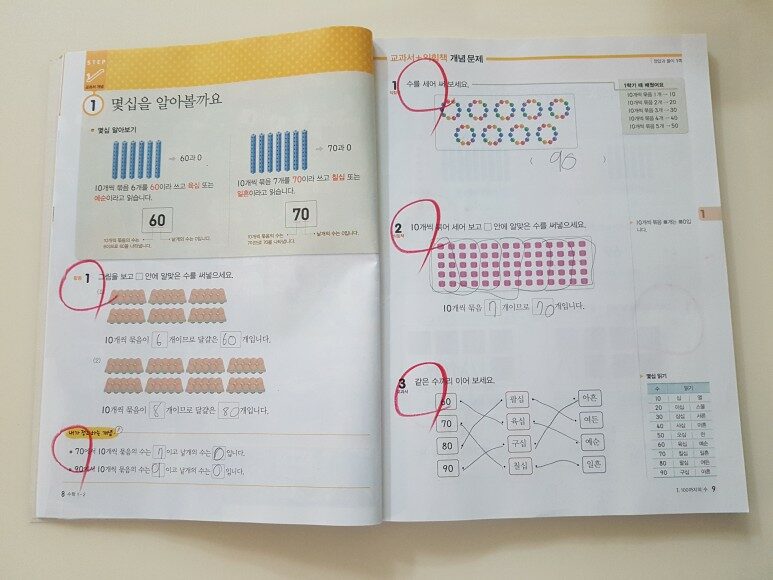 STEP
교과서 개념
1 몇십을 알아볼까요
• 몇십 알아보기
→ 60과 0
10개씩 묶음 6개를 60이라 쓰고 육십 또는
예순이라고 읽습니다.
60
10개씩 묶음의 수는
60으로 6을 나타냅니다.
낱개의 수는 0입니다.
→ 70과 0
10개씩 묶음 7개를 70이라 쓰고 칠십 또는
일흔이라고 읽습니다.
70
10개씩 묶음의 수는
낱개의 수는 0입니다.
1 그림을 보고 □ 안에 알맞은 수를 써넣으세요.
10개씩 묶음이 6 개이므로 달걀은 60 개입니다.
(2)
10개씩 묶음이 8 개이므로 달걀은 80 개입니다.
• 70에서 10개씩 묶음의 수는 7 이고 낱개의 수는 0 입니다.
• 90에서 10개씩 묶음의 수는 9 이고 낱개의 수는 0 입니다.
8 수학 1-2
교과서+익힘책 개념 문제
정답과 풀이 1쪽
1 수를 세어 써 보세요.
( 90 )
1학기 때 배웠어요
10개씩 묶음 1개 → 10
10개씩 묶음 2개 → 20
10개씩 묶음 3개 → 30
10개씩 묶음 4개 → 40
10개씩 묶음 5개 → 50
2 10개씩 묶어 세어 보고 □ 안에 알맞은 수를 써넣으세요.
10개씩 묶음 7 개이므로 70 개입니다.
▸ 10개씩 묶음 ■개는 ■0입니
다.
1
3 같은 수끼리 이어 보세요.
60 팔십 아흔
70 육십 여든
80 구십 예순
90 칠십 일흔
▸ 몇십 읽기
수 읽기
10 십 열
20 이십 스물
30 삼십 서른
40 사십 마흔
50 오십 쉰
60 육십 예순
70 칠십 일흔
80 팔십 여든
90 구십 아흔
1. 100까지의 수 9